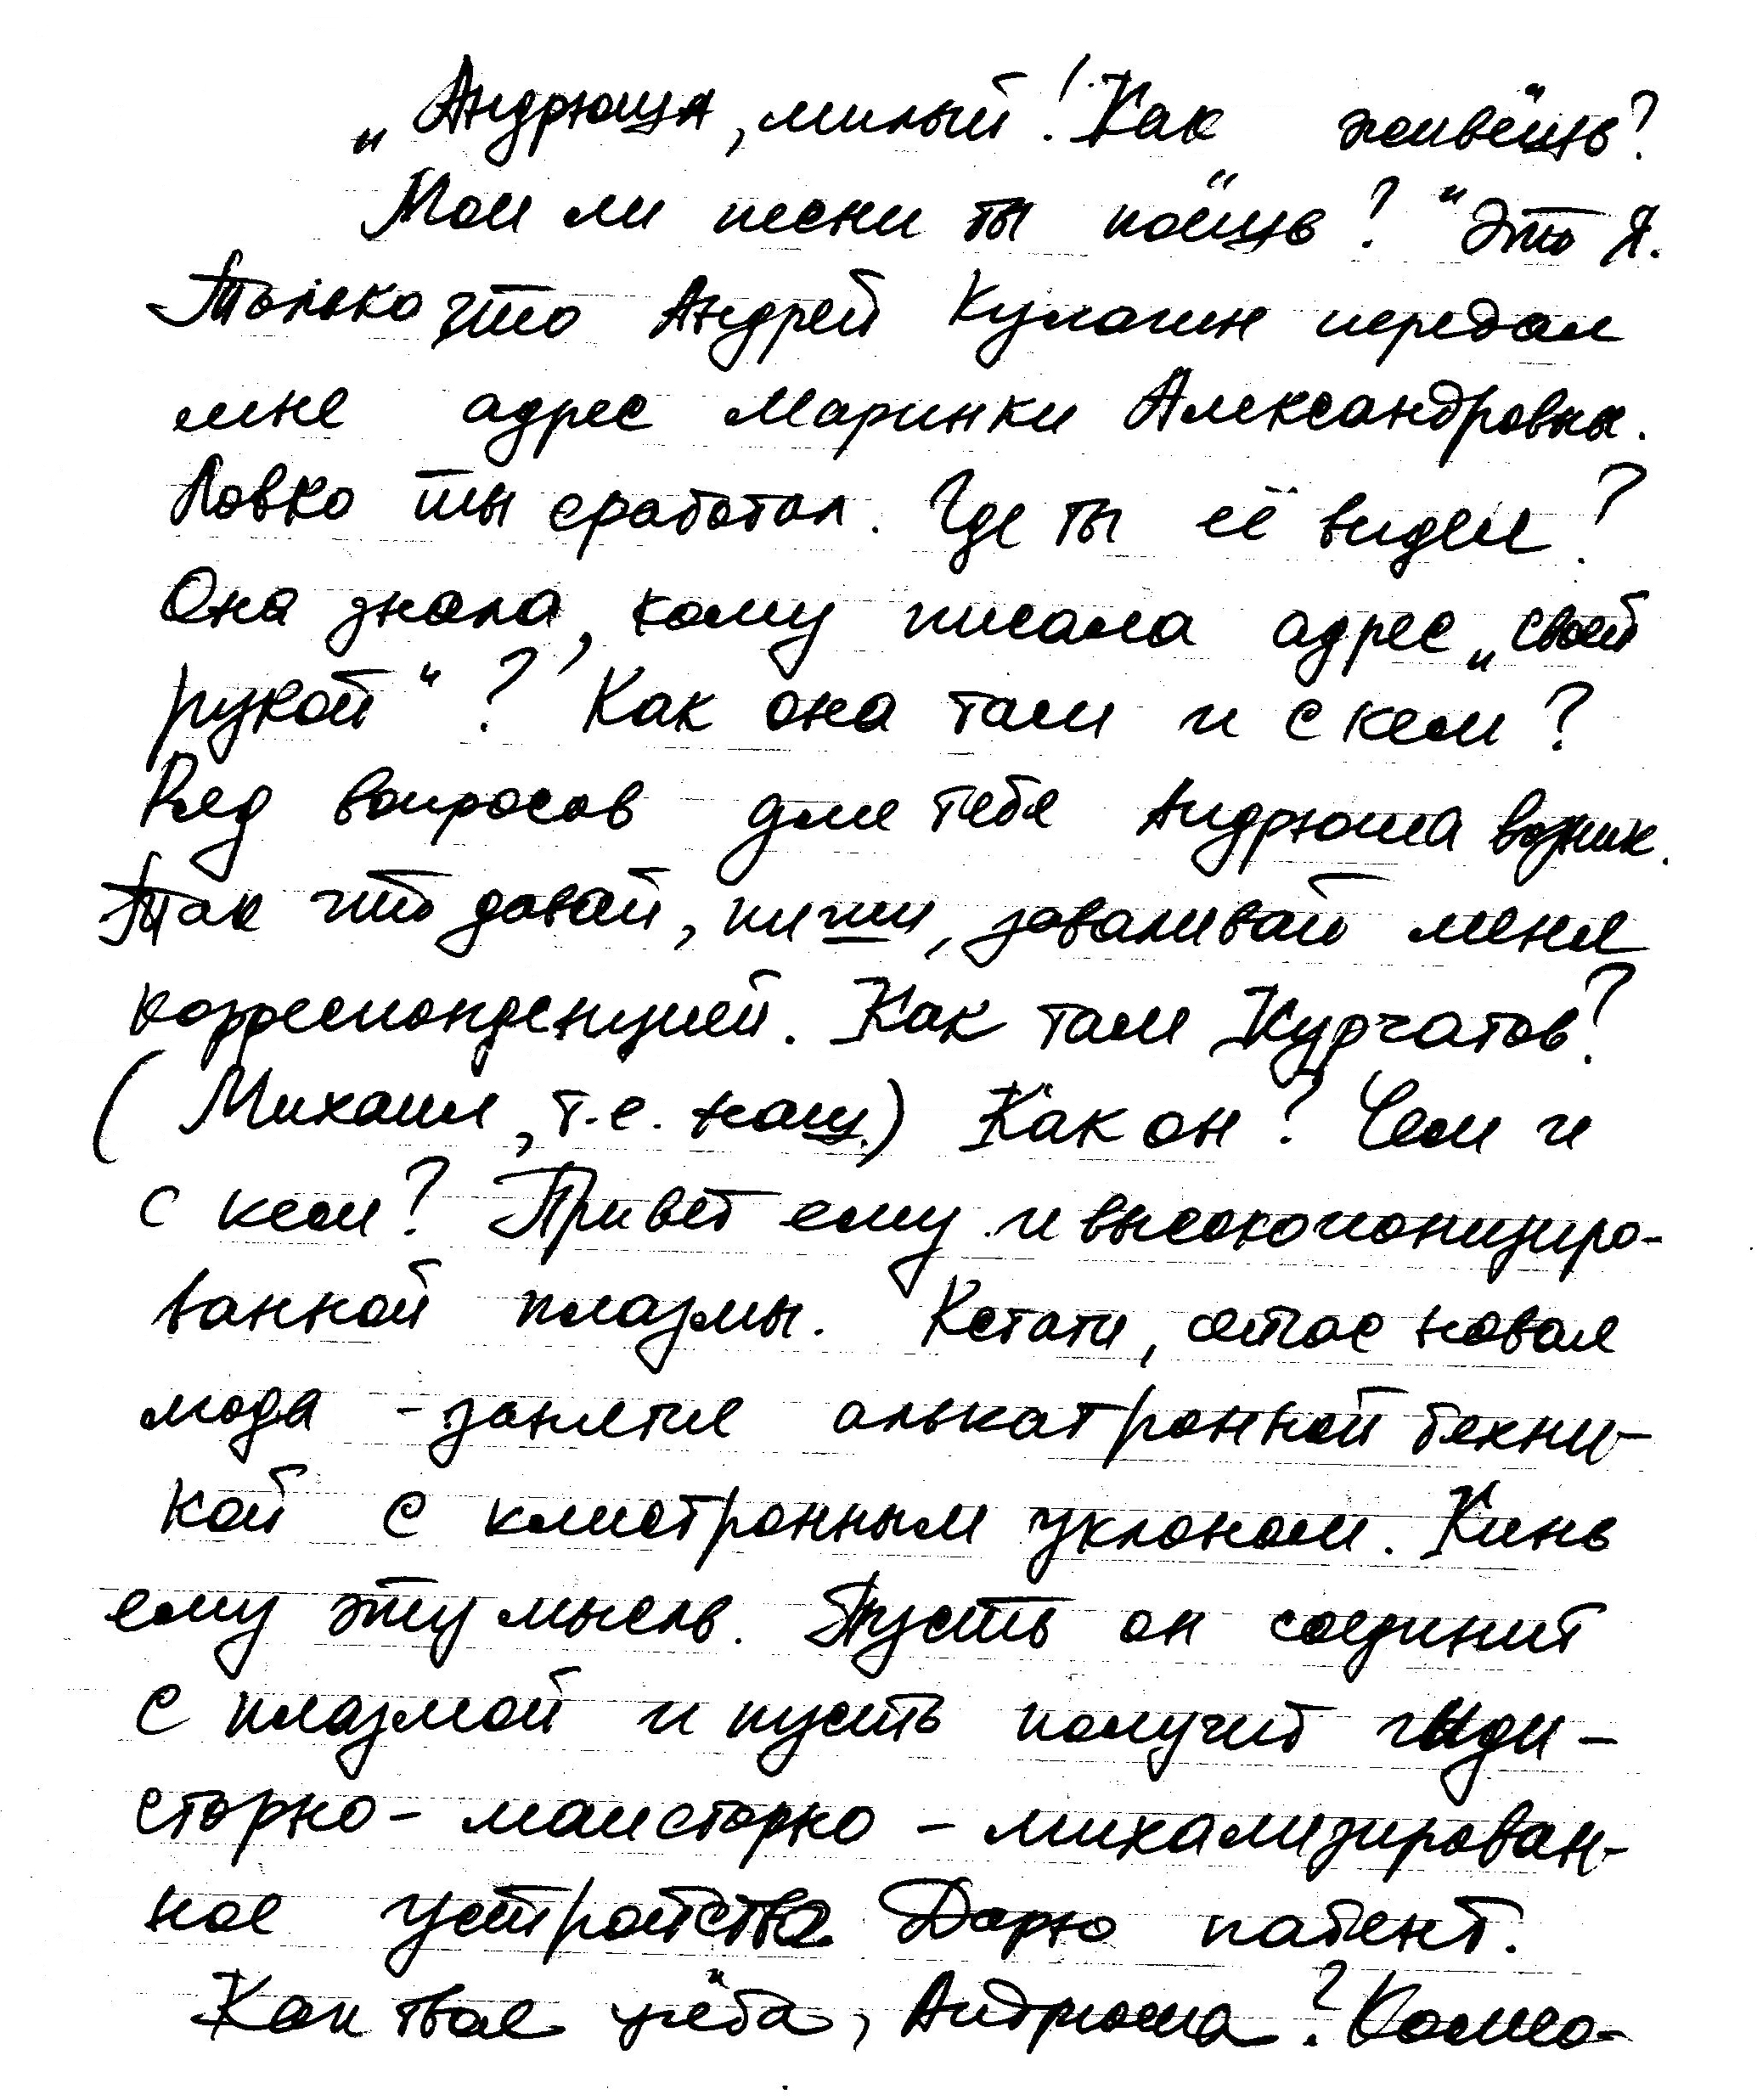 „Андрюша, милый! Как живёшь?
Мои ли песни ты поёшь?" Это я.
Только что Андрей Кулагин передал
мне адрес Маринки Александровны.
Ловко ты сработал. Где ты её видел?
Она знала, кому писала адрес „своей
рукой"? Как она там и с кем?
Ряд вопросов для тебя Андрюша возник.
Так что давай, пиши, заваливай меня
корреспонденцией. Как там Курчатов?
(Михаил, т.е. наш.) Как он? Чем и
с кем? Привет ему и высокоионизиро-
ванной плазмы. Кстати, сейчас новая
мода - занятия алькатронной техни-
кой с клистронным уклоном. Кинь
ему эту мысль. Пусть он соединит
с плазмой и пусть получит
сторно - маисторно - михализирован-
ное устройство. Дарю патент.
Как твоя учёба, Андрюша?